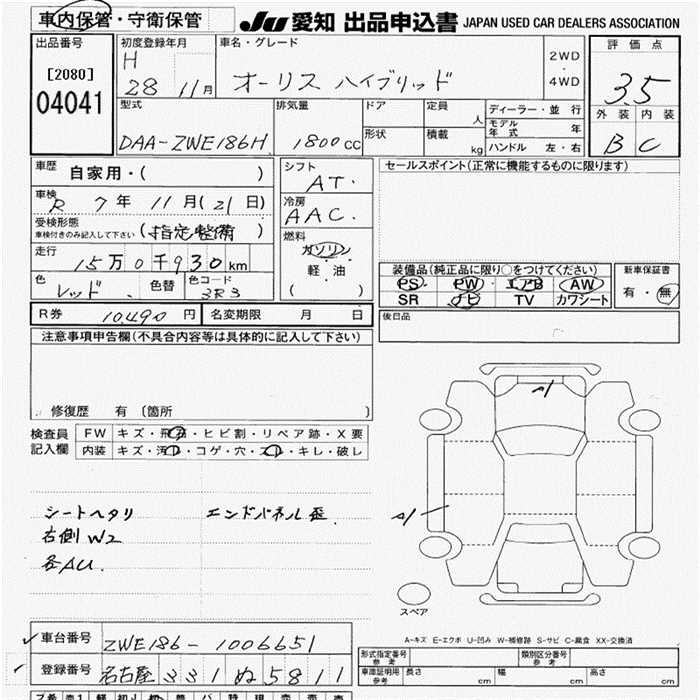 車内保管・守衛保管 JU 愛知 出品申込書 JAPAN USED CAR DEALERS ASSOCIATION
出品番号 初度登録年月 車名・グレード 評価点
[2080] H 28 11月 オーリス ハイブリッド 2WD・4WD 3.5
04041 型式 排気量 ドア 定員 人 ディーラー・並行 外装 内装
DAA-ZWE186H 1800cc 形状 積載 kg モデル年式 年 B C
ハンドル 左・右
車歴 自家用・( ) シフト AT. セールスポイント(正常に機能するものに限ります)
車検 R 7年 11月(21日) 冷房 AAC.
受検形態 車検付きのみ記入して下さい (指定整備)
走行 15万0千930km 燃料 ガソリン 軽油 ( )
装備品(純正品に限り○をつけてください) 新車保証書
色 レッド 色替 色コード 3R3
PS PW エアB AW 有・無
SR ナビ TV カワシート
R券 10,490円 名変期限 月 日 後日品
注意事項申告欄(不具合内容等は具体的に記入して下さい)
修復歴 有 〔箇所 〕
検査員記入欄 FW キズ・飛石・ヒビ割・リペア跡・X要
内装 キズ・汚れ・コゲ・穴・スレ・キレ・破レ
A1
A1
シートヘタリ エンドパネル歪.
右側W2
各AU.
スペア
A-キズ E-エクボ U-凹み W-補修跡 S-サビ C-腐食 XX-交換済
車台番号 ZWE186-1006651 形式指定番号 参考 類別区分番号 参考
登録番号 名古屋 331 ぬ 5811 車庫証明用 参考 長さ cm 幅 cm 高さ cm